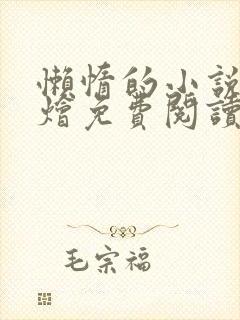 懶惰的小說
燴免費閱讀
毛宗福